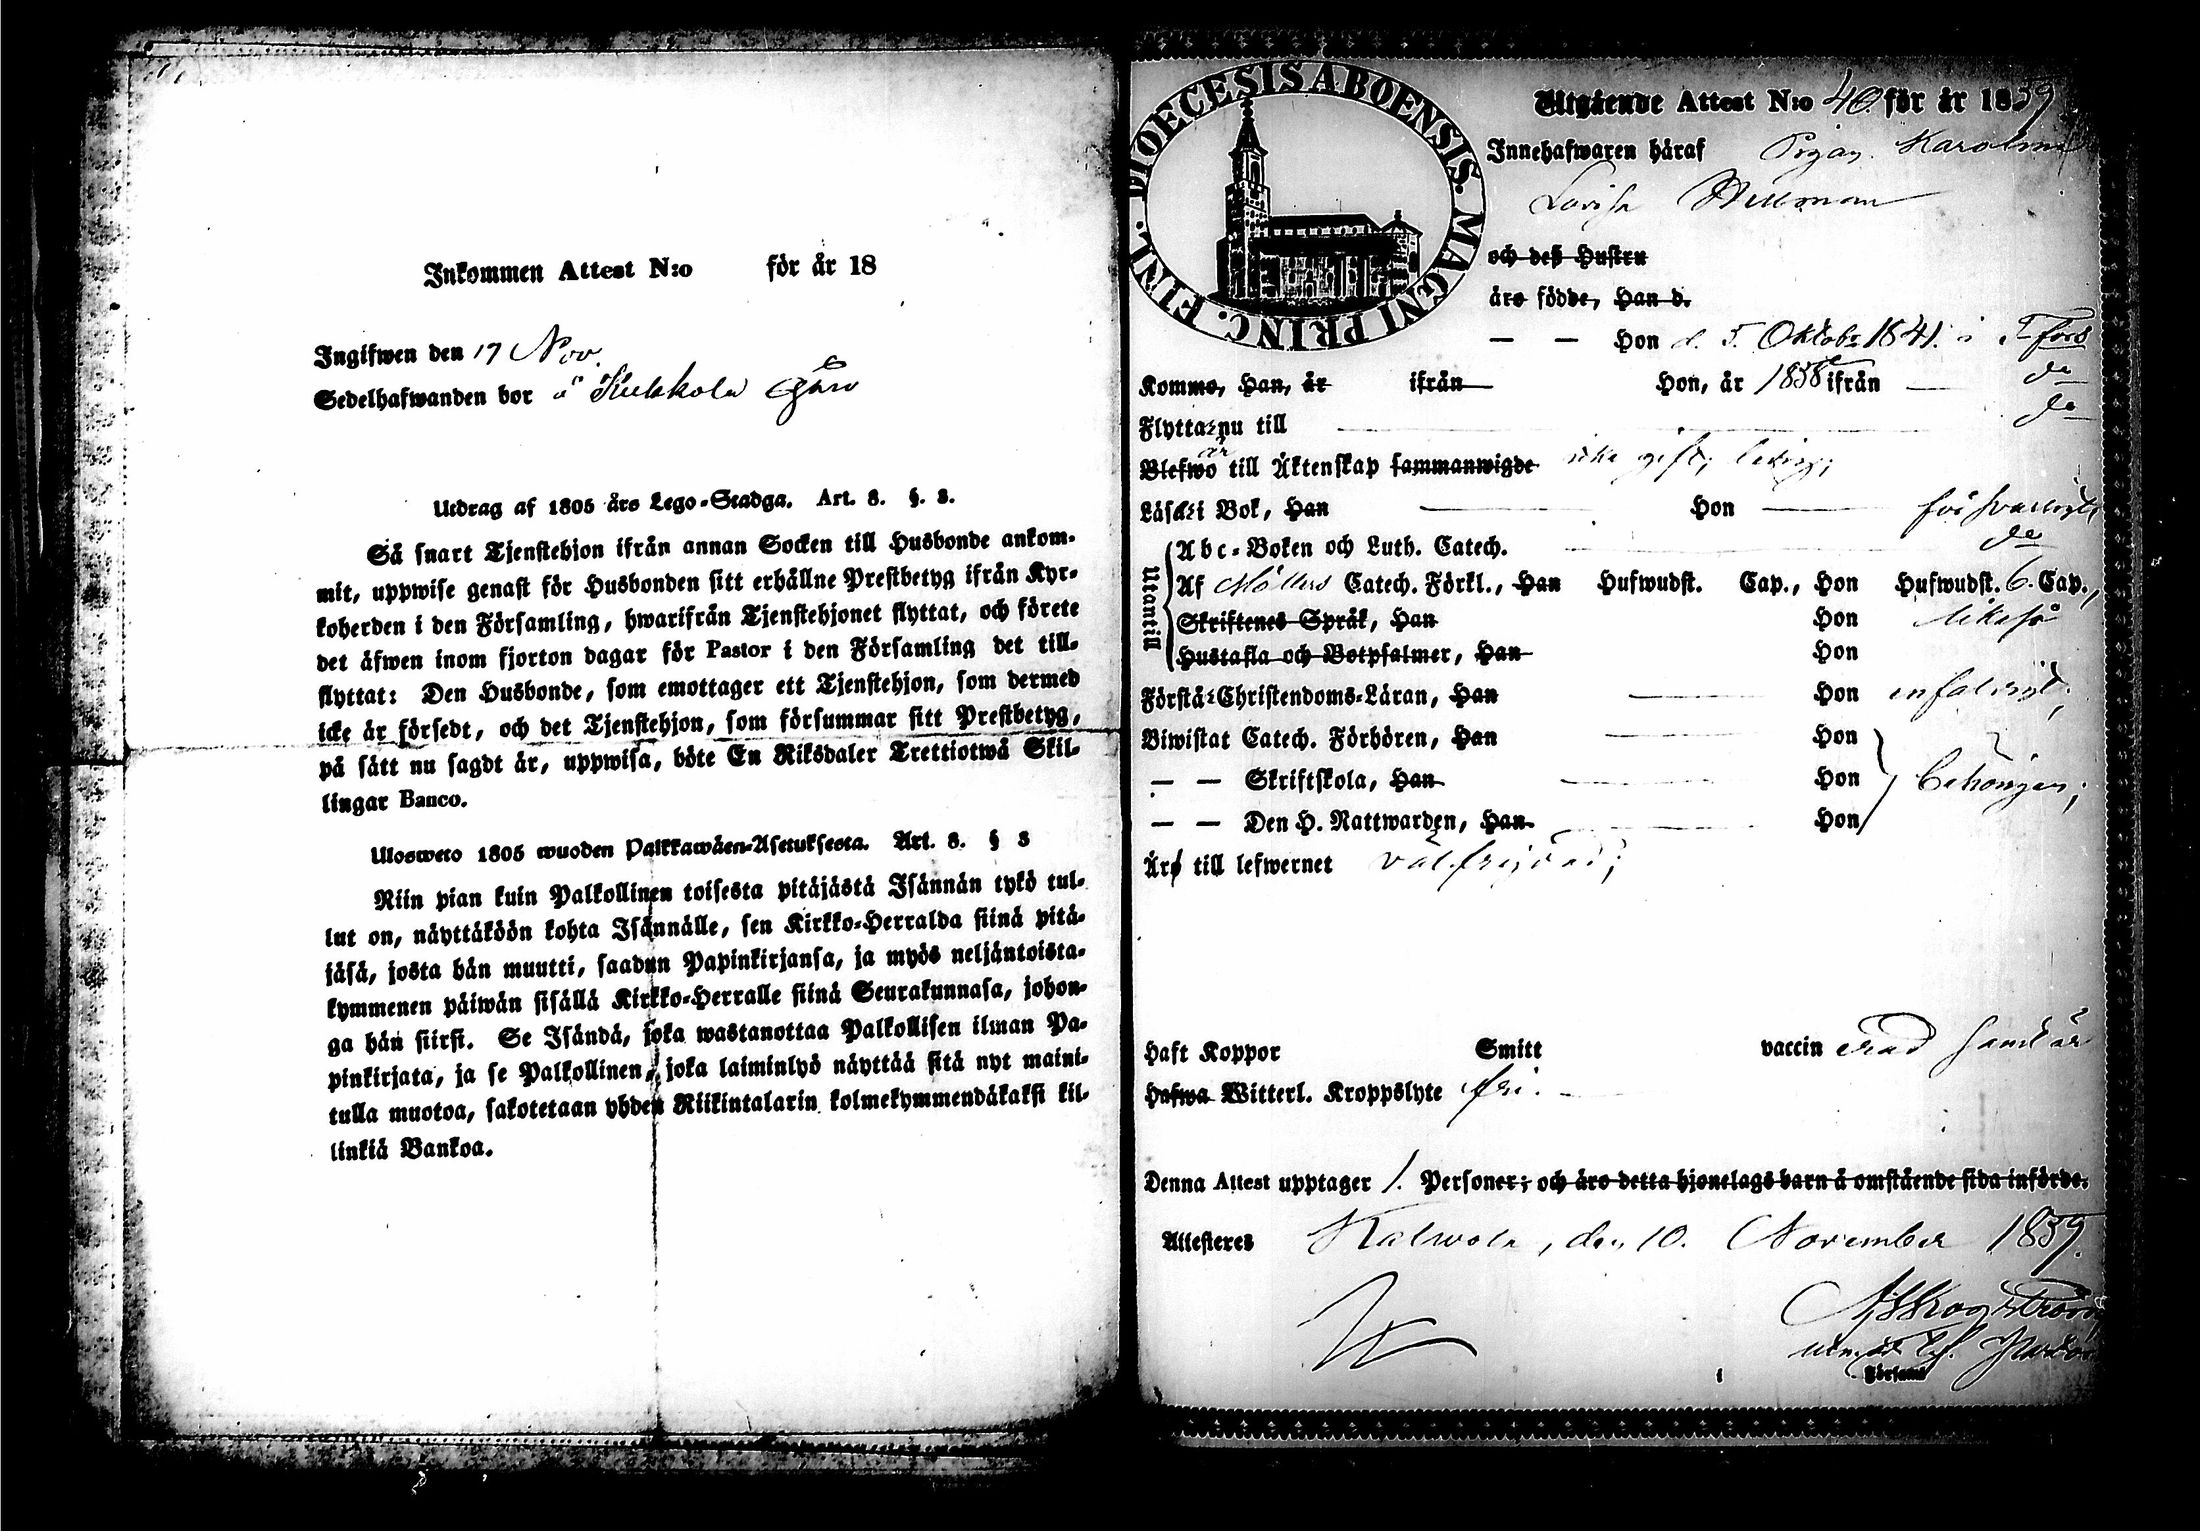 Inkommen Attest N:o för år 18
Ingifwen den 17 Nov.
Sedelhafwanden bor å Kukkola Gård
Utdrag af 1805 års Lego-Stadga. Art. 8. §. 3.
Så snart Tjenstehjon ifrån annan Socken till Husbonde ankom-
mit, uppwise genast för Husbonden sitt erhållne Prestbetyg ifrån Kyr-
koherden i den Församling, hwarifrån Tjenstehjonet flyttat, och förete
det äfwen inom fjorton dagar för Pastor i den Församling det till-
flyttat: Den Husbonde, som emottager ett Tjenstehjon, som dermed
icke är försedt, och det Tjenstehjon, som försummar sitt Prestbetyg,
på sätt nu sagdt är, uppwisa, böte En Riksdaler Trettiotwå Skil-
lingar Banco.
Ulosweto 1805 wuoden Palkkawäen-Asetuksesta. Art. 8. § 3
Niin pian kuin Palkollinen toisesta pitäjästä Isännän tykö tul-
lut on, näyttäköön kohta Isännälle, sen Kirkko-Herralda siinä pitä-
jäsä, josta hän muutti, saadun Papinkirjansa, ja myös neljäntoista-
kymmenen päiwän sisällä Kirkko-Herralle siinä Seurakunnasa, johon-
ga hän siirsi. Se Isändä, joka wastanottaa Palkollisen ilman Pa-
pinkirjata, ja se Palkollinen, joka laiminlyö näyttää sitä nyt maini-
tulla muotoa, sakotetaan yhden Riikintalarin kolmekymmendäkaksi kil-
linkiä Bankoa.
DIOECESIS ABOENSIS. MAGNI PRINC. FINL.
Utgående Attest N:o 40 för år 1859
Innehafwaren häraf Pigan Karolina
Lovisa Wellman
och deß Hustru
äro födde, Han d.
— — Hon d. 5. Oktobr 1841. i T-fors
Komme, Han, år ifrån Hon, år 1858 ifrån — do
Flytta nu till do
Blefwo är till Äktenskap sammanwigde icke gift, ledig;
Läsa: i Bok, Han — Hon — försvarligt,
Utantill
Abc-Boken och Luth. Catech. do
Af Möllers Catech. Förkl., Han Hufwudst. Cap., Hon Hufwudst. 6. Cap.,
Skriftenes Språk, Han Hon likaså
Hustafla och Botpsalmer, Han Hon
Förstå: Christendoms-Läran, Han — Hon enfaldigt;
Biwistat Catech. Förhören, Han — Hon
— — Skriftskola, Han — Hon behörigen;
— — Den H. Nattwarden, Han — Hon
Äro till lefwernet välfrejdad;
Haft Koppor Smitt vaccin Hafwa Witterl. Kroppslyte fri.
Denna Attest upptager 1. Personer; och äro detta hjonelags barn å omstående sida införde.
Attesteres Kalwola, den 10. November 1859.
Församl